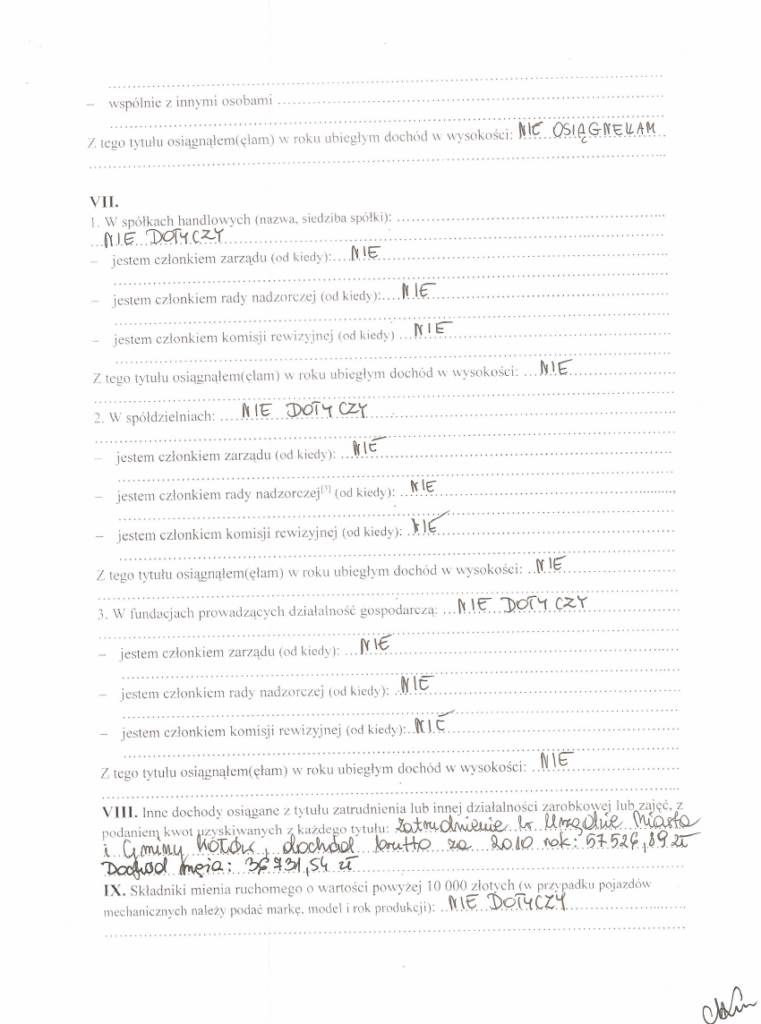 – wspólnie z innymi osobami
Z tego tytułu osiągnąłem(ęłam) w roku ubiegłym dochód w wysokości: NIE OSIĄGNEŁAM
VII.
1. W spółkach handlowych (nazwa, siedziba spółki):
NIE DOTYCZY
– jestem członkiem zarządu (od kiedy): NIE
– jestem członkiem rady nadzorczej (od kiedy): NIE
– jestem członkiem komisji rewizyjnej (od kiedy) NIE
Z tego tytułu osiągnąłem(ęłam) w roku ubiegłym dochód w wysokości: NIE
2. W spółdzielniach: NIE DOTYCZY
– jestem członkiem zarządu (od kiedy): NIE
– jestem członkiem rady nadzorczej[3] (od kiedy): NIE
– jestem członkiem komisji rewizyjnej (od kiedy): NIE
Z tego tytułu osiągnąłem(ęłam) w roku ubiegłym dochód w wysokości: NIE
3. W fundacjach prowadzących działalność gospodarczą: NIE DOTYCZY
– jestem członkiem zarządu (od kiedy): NIE
– jestem członkiem rady nadzorczej (od kiedy): NIE
– jestem członkiem komisji rewizyjnej (od kiedy): NIE
Z tego tytułu osiągnąłem(ęłam) w roku ubiegłym dochód w wysokości: NIE
VIII. Inne dochody osiągane z tytułu zatrudnienia lub innej działalności zarobkowej lub zajęć, z
podaniem kwot uzyskiwanych z każdego tytułu: Zatrudnienie w Urzędzie Miasta
i Gminy, dochód brutto za 2010 rok: 57526,89 zł
Dochód męża: 36731,54 zł
IX. Składniki mienia ruchomego o wartości powyżej 10 000 złotych (w przypadku pojazdów
mechanicznych należy podać markę, model i rok produkcji): NIE DOTYCZY